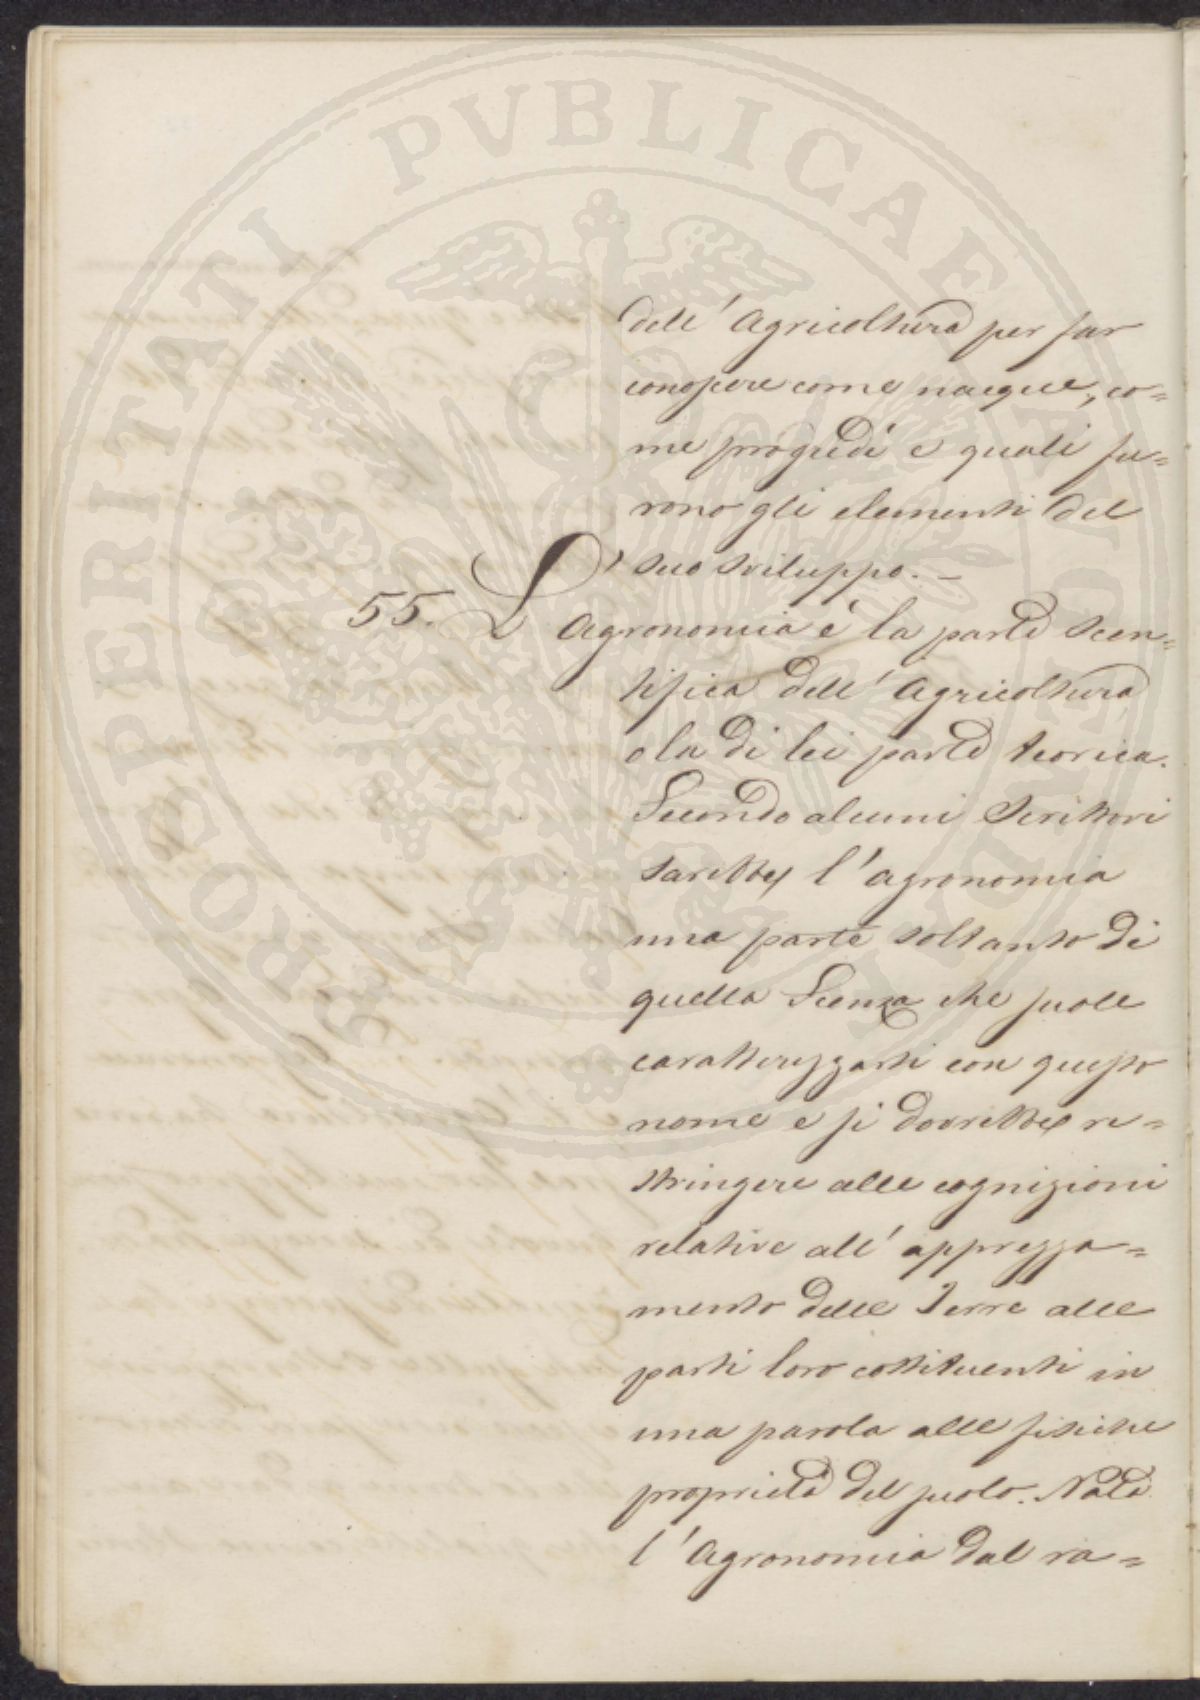 PROSPERITATI PVBLICAE AVGENDAE
dell' Agricoltura per far
conoscere come nacque, co=
me progredì e quali fu=
rono gli elementi del
suo sviluppo. _
55. L' Agronomia è la parte Scen=
tifica dell' Agricoltura
o la di lei parte teorica.
Secondo alcuni Scrittori
sarebbe l' agronomia
una parte soltanto di
quella Scienza che suole
caratterizzarsi con questo
nome e si dovrebbe re=
stringere alle cognizioni
relative all' apprezza=
mento delle Terre alle
parti loro costituenti in
una parola alle fisiche
proprietà del suolo. Nata
l' Agronomia dal ra=